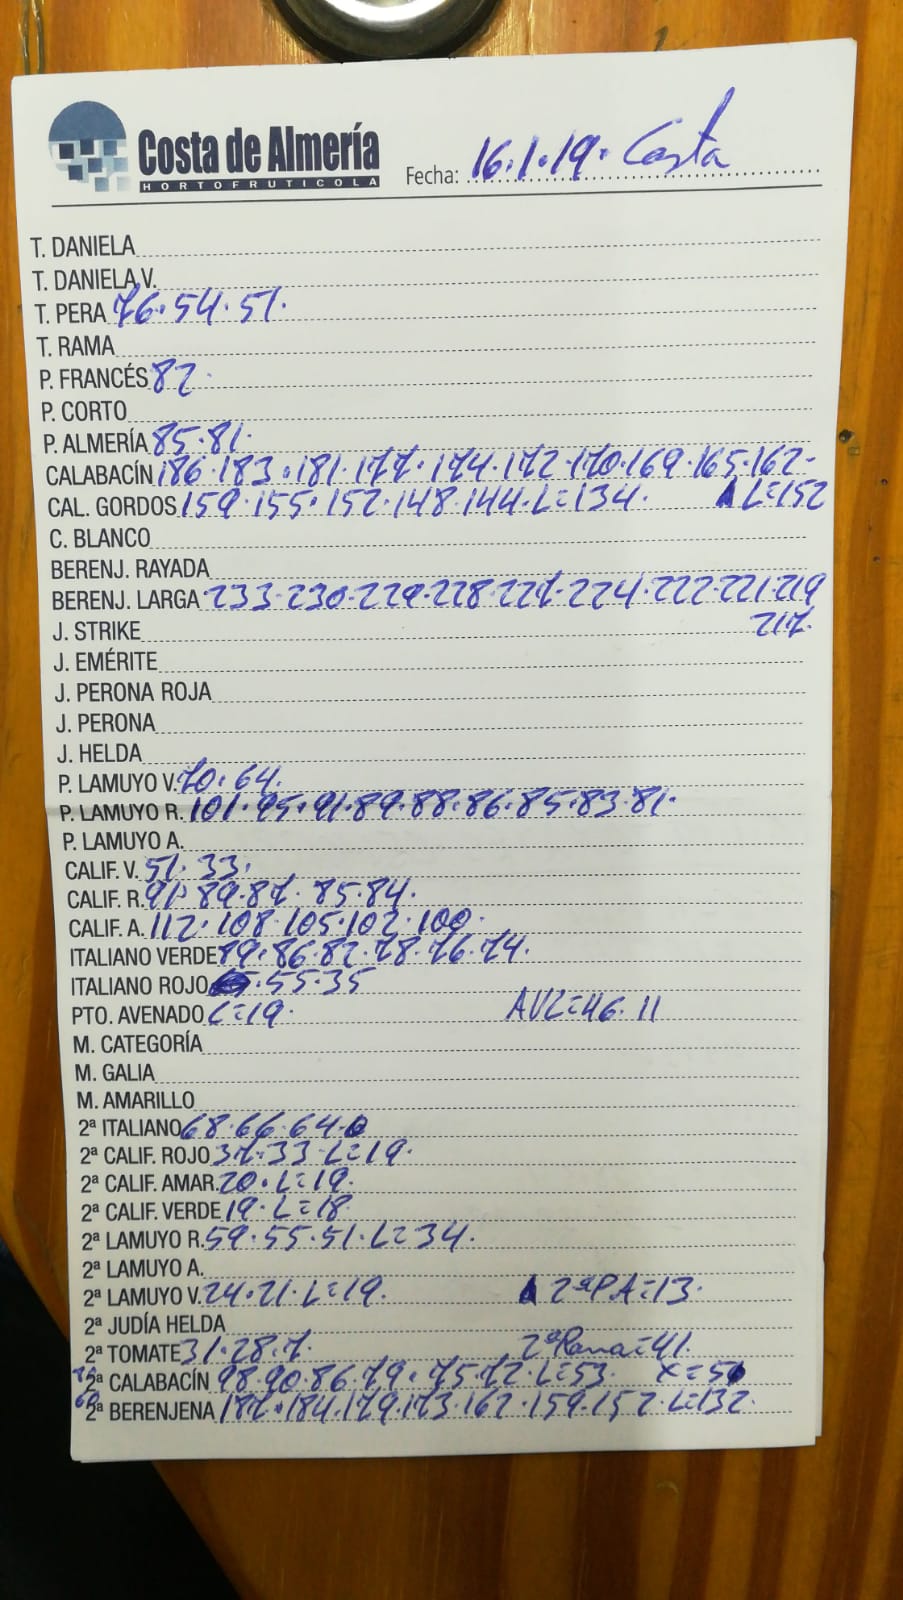 Costa de Almería
HORTOFRUTICOLA
Fecha: 16.1.19. Costa
T. DANIELA
T. DANELA V.
T. PERA 76.54.51.
T. RAMA
P. FRANCÉS 82.
P. CORTO
P. ALMERÍA 85.81.
CALABACÍN 186.183.181.177.174.172.170.169.165.162-
CAL. GORDOS 159.155.152.148.144.L=134. L=152
C. BLANCO
BERENJ. RAYADA
BERENJ. LARGA 233.230.229.228.227.224.222.221.219
J. STRIKE 217.
J. EMÉRITE
J. PERONA ROJA
J. PERONA
J. HELDA
P. LAMUYO V. 70.64.
P. LAMUYO R. 101.95.91.89.88.86.85.83.81.
P. LAMUYO A.
CALIF. V. 51.33.
CALIF. R. 91.89.87.85.84.
CALIF. A. 112.108.105.102.100.
ITALIANO VERDE 89.86.82.78.76.74.
ITALIANO ROJO .55.35
PTO. AVENADO L=19. AVL=46.11
M. CATEGORÍA
M. GALIA
M. AMARILLO
2ª ITALIANO 68.66.64.
2ª CALIF. ROJO 37.33.L=19.
2ª CALIF. AMAR. 20.L=19.
2ª CALIF. VERDE 19.L=18
2ª LAMUYO R. 59.55.51.L=34.
2ª LAMUYO A.
2ª LAMUYO V. 24.21.L=19. 2ªPA=13.
2ª JUDÍA HELDA
2ª TOMATE 31.28.7. 2ªRama=41.
2ª CALABACÍN 98.90.86.79.75.72.L=53.
2ª BERENJENA 187.184.179.173.162.159.152.L=132.